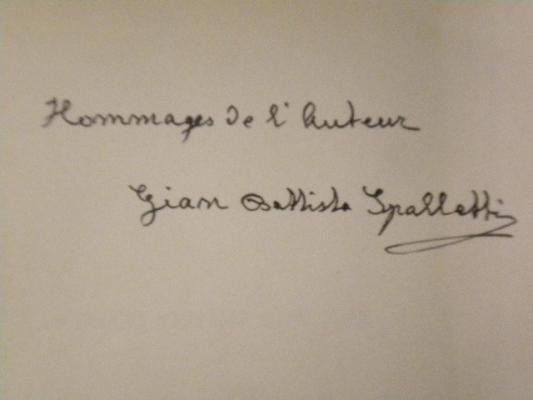 Hommages de l'auteur
Gian Battista Spalletti